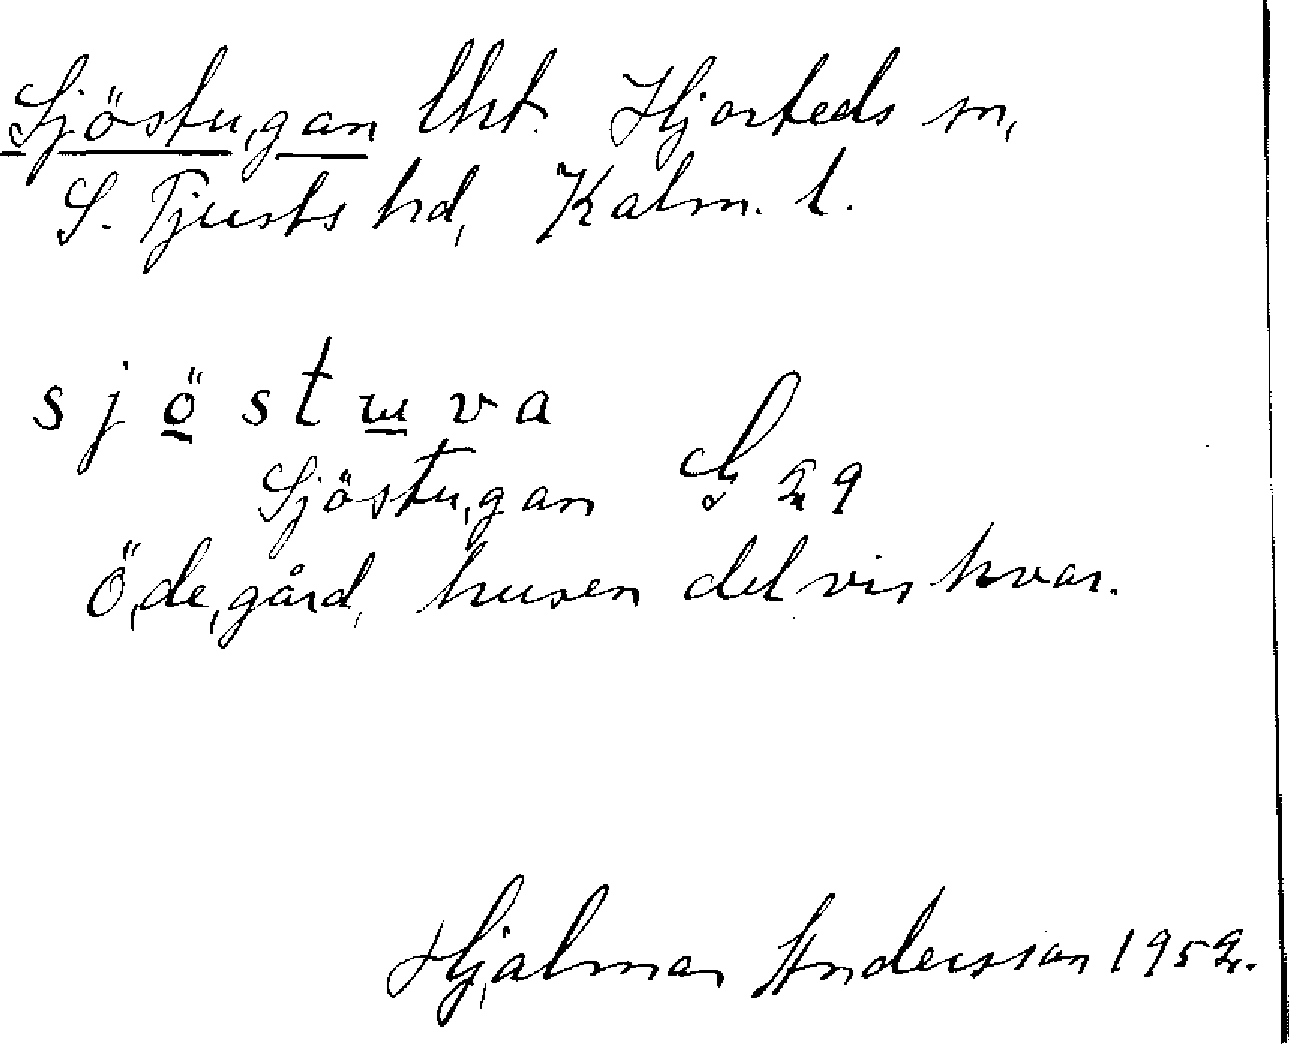 Sjöstugan lht. Hjorteds sn,
S. Tjusts hd, Kalm. l.
sjöstɯva
Sjöstugan G 29
Ödegård, husen delvis kvar.
Hjalmar Andersson 1952.